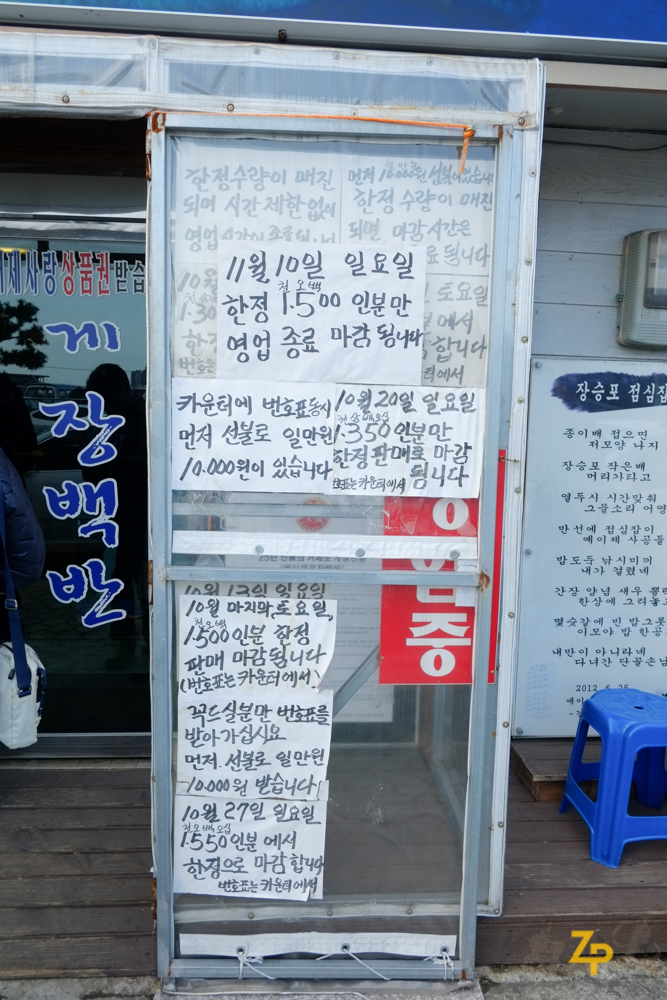 한정수량이 매진
되면 시간 제한 없이
한정 수량이 매진
되면 마감시간은
11월 10일 일요일
천오백
한정 1.500 인분만
영업 종료 마감 됩니다
카운터에 번호표동시
먼저 선불로 일만원
10.000원이 있습니다
10월 20일 일요일
1.350 인분만
한정판매로 마감
됩니다
번호표는 카운터에서
10월 13일 일요일
10월 마지막, 토요일,
천오백
1500인분 한정
판매 마감됩니다
(번호표는 카운터에서)
꼭드실분만 번호표를
받아가십시요
먼저 선불로 일만원
10.000원 받습니다
10월 27일 일요일
천오백오십
1.550인분 에서
한정으로 마감합니다
번호표는 카운터에서
상품권 받습
게
장
백
반
중
장승포 점심
종이배 접으면
저모양 나지
장승포 작은배
머리가라고
열두시 시간맞춰
그들소리
만선에 점심잠이
예이제 사공들
밥도둑 낚시미끼
내가 걸렸네
간장 양념 새우
한상에 그려놓고
몇숫갈에 빈 밥그릇
이모야 밥 한공
내만이 아니라네
다녀간 단골손님
2012. 6. 25
ZP